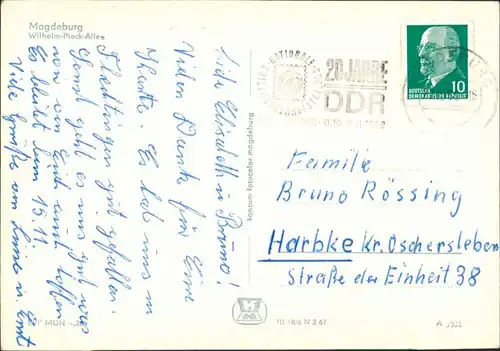 Magdeburg
Wilhelm-Pieck-Allee
Liebe Elisabeth u. Bruno!
Vielen Dank für Eure
Karte. Es hat uns in
Flechtingen gut gefallen.
Sonst geht es uns gut, was
wir von Euch auch hoffen.
Es bleibt beim 15.11.
Viele Grüße von u. Ernst
konsum fotocolor magdeburg
20 JAHRE
DDR
10
DEUTSCHE
DEMOKRATISCHE REPUBLIK
Familie
Bruno Rössing
Harbke Kr. Oschersleben
Straße der Einheit 38
MDN
III/18/6 N 2 67